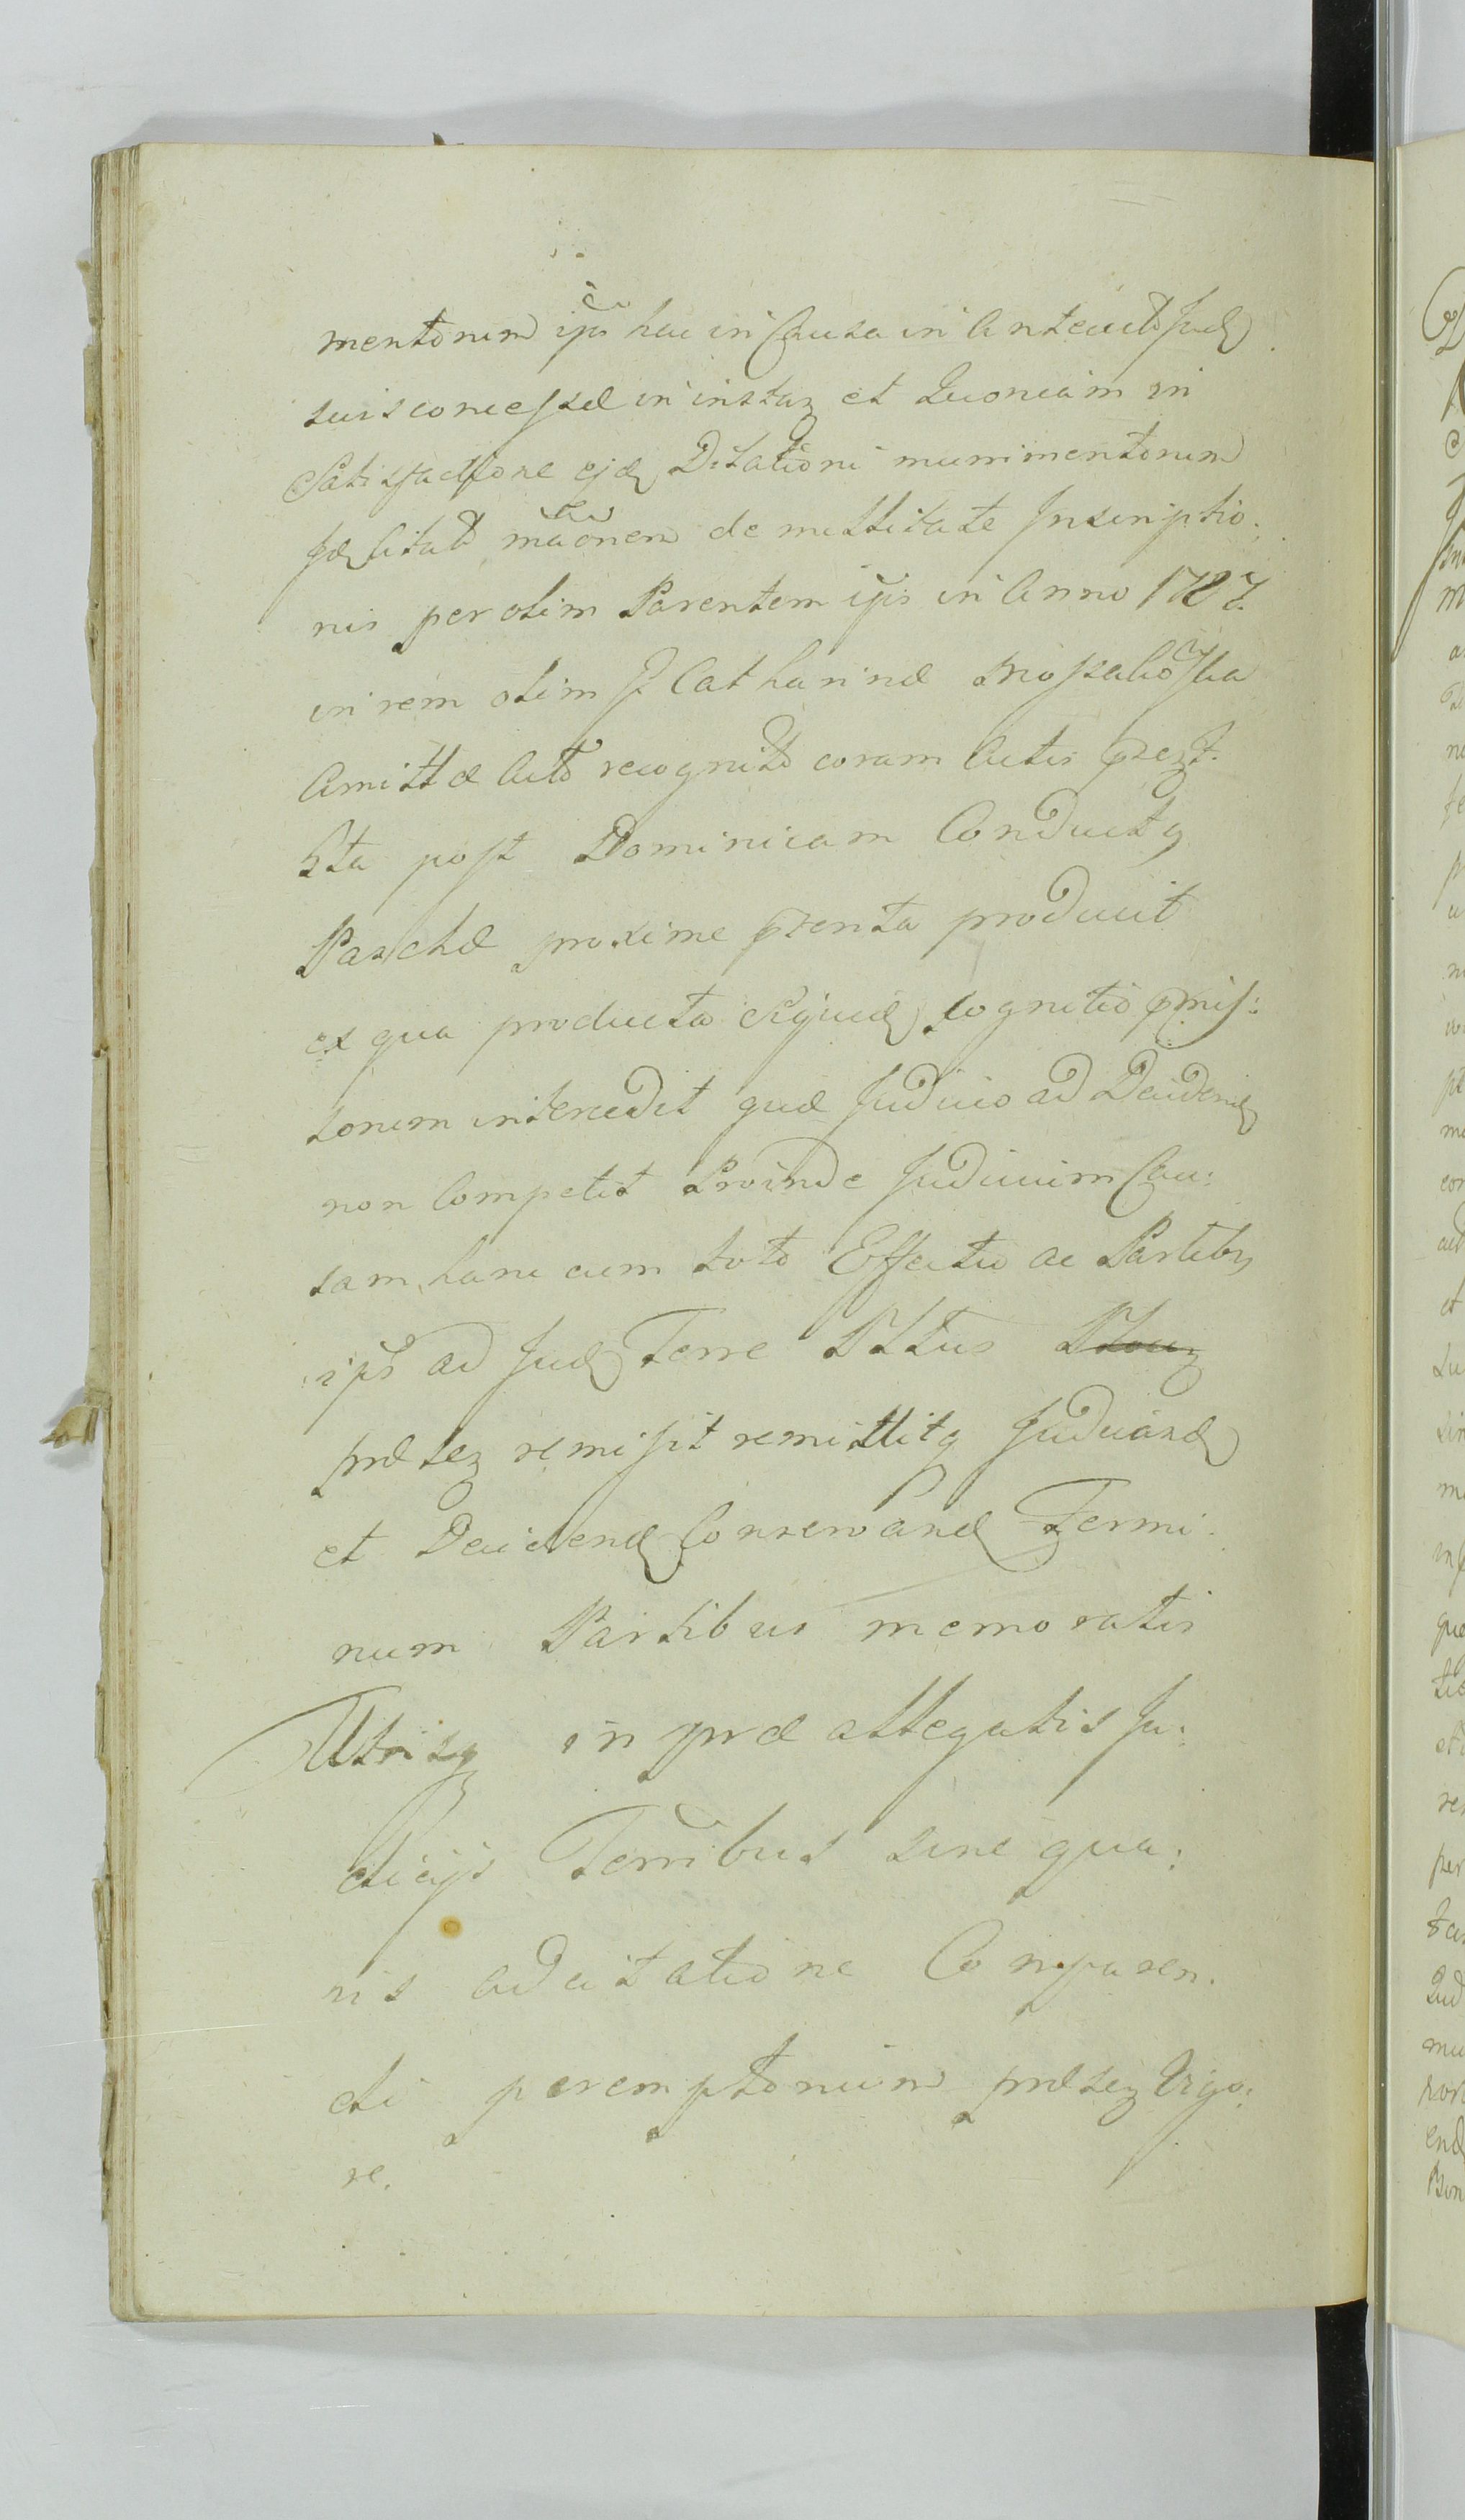 mentorum ips hac in Causa in Anteact Jud
suis concessæ in instan et Quoniam in
Satisfactione ejd Dilationi munimentorum
Citats mãonem de nullitate Inscriptio:
nis per olim Parentem ips in Anno 1787
in rem olim Catharinæ
Amittæ Acto recognito coram Actis
5ta post Dominicam Conductq
Paschæ proxime præenta producit
ex qua producta Ejusd cognitio
sorum intercedit quæ Judicio ad Decidend
non Competit Proinde Judicium Cau:
sam hanc cum toto Effectu ac Partibq
ips ad Jud Terre
præsez remisit remittitq Judicand
et Decidend Conservand Termi:
num Partibus memoratis
Utrisq in præallegatis Ju:
diciis Terribus sine qua:
vis adcitatione Comparen:
di peremptorium præsez Vigo:
re.